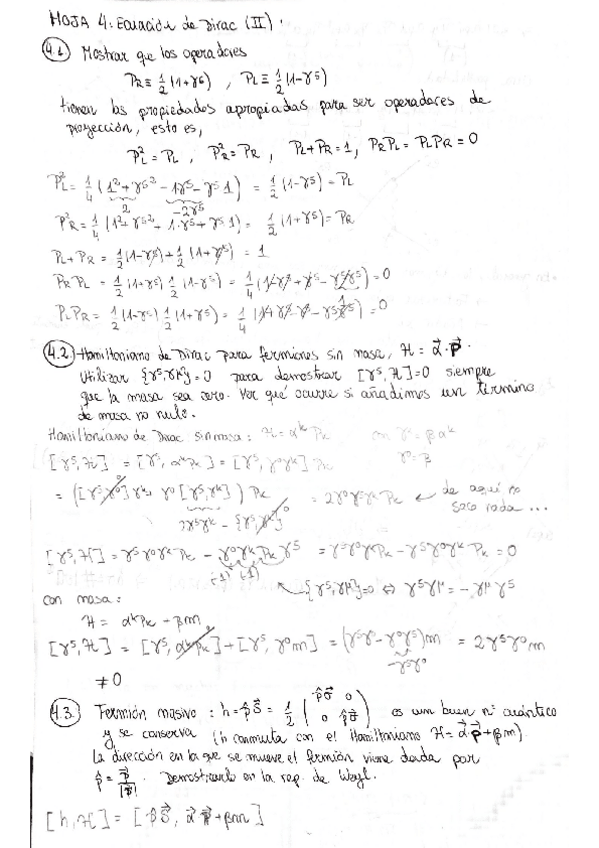 HOJA 4: Ecuación de Dirac (II):
4.1. Mostrar que los operadores
P_R ≡ 1/2 (1+γ⁵) , P_L ≡ 1/2 (1-γ⁵)
tienen las propiedades apropiadas para ser operadores de
proyección, esto es,
P_L² = P_L , P_R² = P_R , P_L+P_R = 1, P_R P_L = P_L P_R = 0
P_L² = 1/4 (1² + γ⁵² - 1γ⁵ - γ⁵1) = 1/2 (1-γ⁵) = P_L
2 -2γ⁵
P²_R = 1/4 (1² + γ⁵² + 1·γ⁵ + γ⁵1) = 1/2 (1+γ⁵) = P_R
P_L + P_R = 1/2 (1-γ⁵) + 1/2 (1+γ⁵) = 1
P_R P_L = 1/2 (1+γ⁵) 1/2 (1-γ⁵) = 1/4 (1 + γ⁵ - γ⁵ - γ⁵γ⁵) = 0
P_L P_R = 1/2 (1-γ⁵) 1/2 (1+γ⁵) = 1/4 (1 + γ⁵ - γ⁵ - γ⁵γ⁵) = 0
4.2. Hamiltoniano de Dirac para fermiones sin masa, H = α⃗·p⃗.
Utilizar {γ⁵,γ^μ} = 0 para demostrar [γ⁵,H]=0 siempre
que la masa sea cero. Ver qué ocurre si añadimos un término
de masa no nulo.
Hamiltoniano de Dirac sin masa: H = α^k P_k con γ^k = βα^k
γ⁰ = β
[γ⁵,H] = [γ⁵, α^k P_k] = [γ⁵, γ⁰γ^k] P_k
= ([γ⁵,γ⁰]γ^k + γ⁰[γ⁵,γ^k]) P_k = 2γ⁰γ⁵γ^k P_k ← de aquí no
2γ⁵γ^k - {γ⁵,γ^k} saco nada ...
[γ⁵,H] = γ⁵γ⁰γ^k P_k - γ⁰γ^k P_k γ⁵ = γ⁵γ⁰γ^k P_k - γ⁵γ⁰γ^k P_k = 0
(-1) (-1) {γ⁵,γ^μ}=0 ⇔ γ⁵γ^μ = -γ^μ γ⁵
con masa:
H = α^k P_k - βm
[γ⁵,H] = [γ⁵, α^k P_k] + [γ⁵, γ⁰m] = (γ⁵γ⁰ - γ⁰γ⁵)m = 2γ⁵γ⁰m
-γ⁵γ⁰
≠ 0
4.3. Fermión masivo: h = p̂ S⃗ = 1/2 (p̂σ⃗ 0 0 p̂σ⃗) es un buen nº cuántico
y se conserva (h conmuta con el Hamiltoniano H = α⃗·p⃗ + βm).
La dirección en la que se mueve el fermión viene dada por
p̂ = p⃗/|p⃗|. Demostrarlo en la rep. de Weyl.
[h,H] = [p̂S⃗, α⃗ p⃗ + βm]